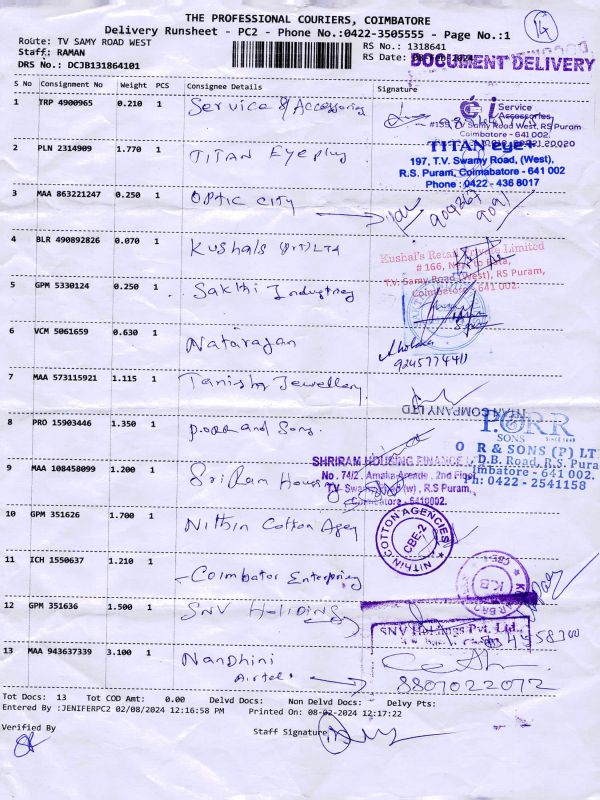 THE PROFESSIONAL COURIERS, COIMBATORE
Delivery Runsheet - PC2 - Phone No.:0422-3505555 - Page No.:1
Route: TV SAMY ROAD WEST
RS No.: 1318641
Staff: RAMAN
RS Date:
DOCUMENT DELIVERY
DRS No.: DCJB131864101
S No Consignment No Weight PCS Consignee Details Signature
1 TRP 4900965 0.210 1 Service & Accessories
i Service Accessories
#159, T.V Samy Road West, RS Puram
Coimbatore - 641 002.
2 PLN 2314909 1.770 1 TITAN Eye plus
TITAN eye+
197, T.V. Swamy Road, (West),
R.S. Puram, Coimabatore - 641 002
Phone : 0422 - 436 8017
3 MAA 863221247 0.250 1 OPTIC CITY
4 BLR 490892826 0.070 1 Kushals (Pvt) LTd
Kushal's Retail Private Limited
# 166,
T.V. Samy Road (West), RS Puram,
Coimbatore - 641 002.
5 GPM 5330124 0.250 1 Sakthi Industries
6 VCM 5061659 0.630 1 Natarajan
9245774411
7 MAA 573115921 1.115 1 Tanishq Jewellery
TITAN COMPANY LTD
8 PRO 15903446 1.350 1 P.ORR and Sons.
P.ORR
SONS
O R & SONS (P) LT
D.B. Road, R.S. Pura
imbatore - 641 002
Ph: 0422 - 2541158
9 MAA 108458099 1.200 1 Sri Ram Housing
SHRIRAM HOUSING FINANCE
No. 74/2, Amaka Arcade, 2nd Floor
T.V Swamy Road (w), R.S Puram,
Coimbatore - 6410002.
10 GPM 351626 1.700 1 Nithin Cotton Agey
NITHIN COTTON AGENCIES
CBE-2
11 ICH 1550637 1.210 1 Coimbator Enterprises
K.B
12 GPM 351636 1.500 1 SNV HOLIDINGS
Holdings Pvt. Ltd.,
13 MAA 943637339 3.100 1 Nandhini
Airtel
8807022072
Tot Docs: 13 Tot COD Amt: 0.00 Delvd Docs: Non Delvd Docs: Delvy Pts:
Entered By :JENIFERPC2 02/08/2024 12:16:58 PM Printed On: 08-02-2024 12:17:22
Verified By
Staff Signature